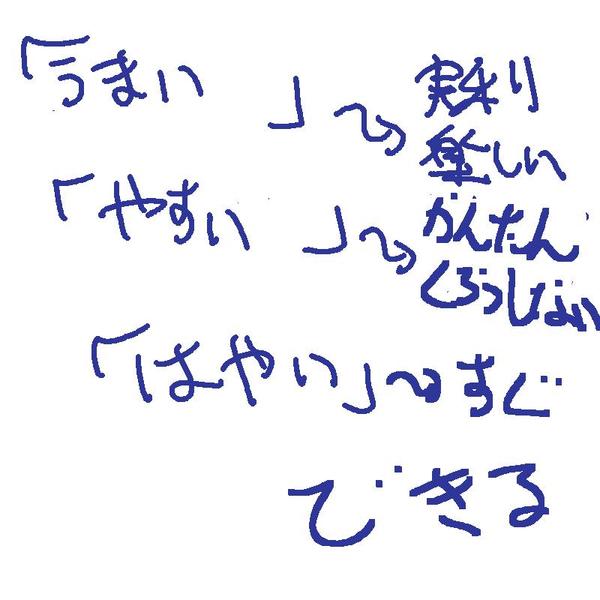 「うまい」〜→実利
楽しい
「やすい」〜→かんたん
くろうしない
「はやい」〜→すぐ
できる